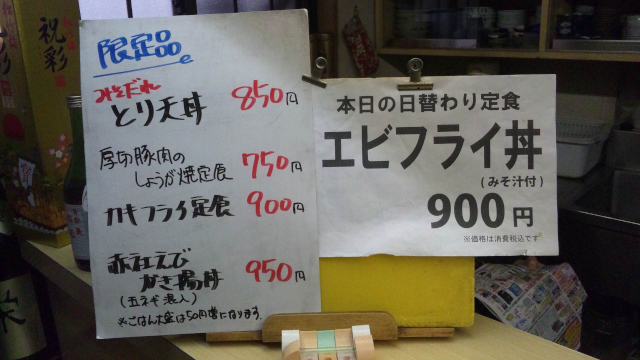 限定品
みそだれ
とり天丼 850円
厚切豚肉の
しょうが焼定食 750円
カキフライ定食 900円
赤社えび
かき揚丼 950円
(玉ネギ混入)
※ごはん大盛は50円増になります。
本日の日替わり定食
エビフライ丼
(みそ汁付)
900円
※価格は消費税込です
祝彩